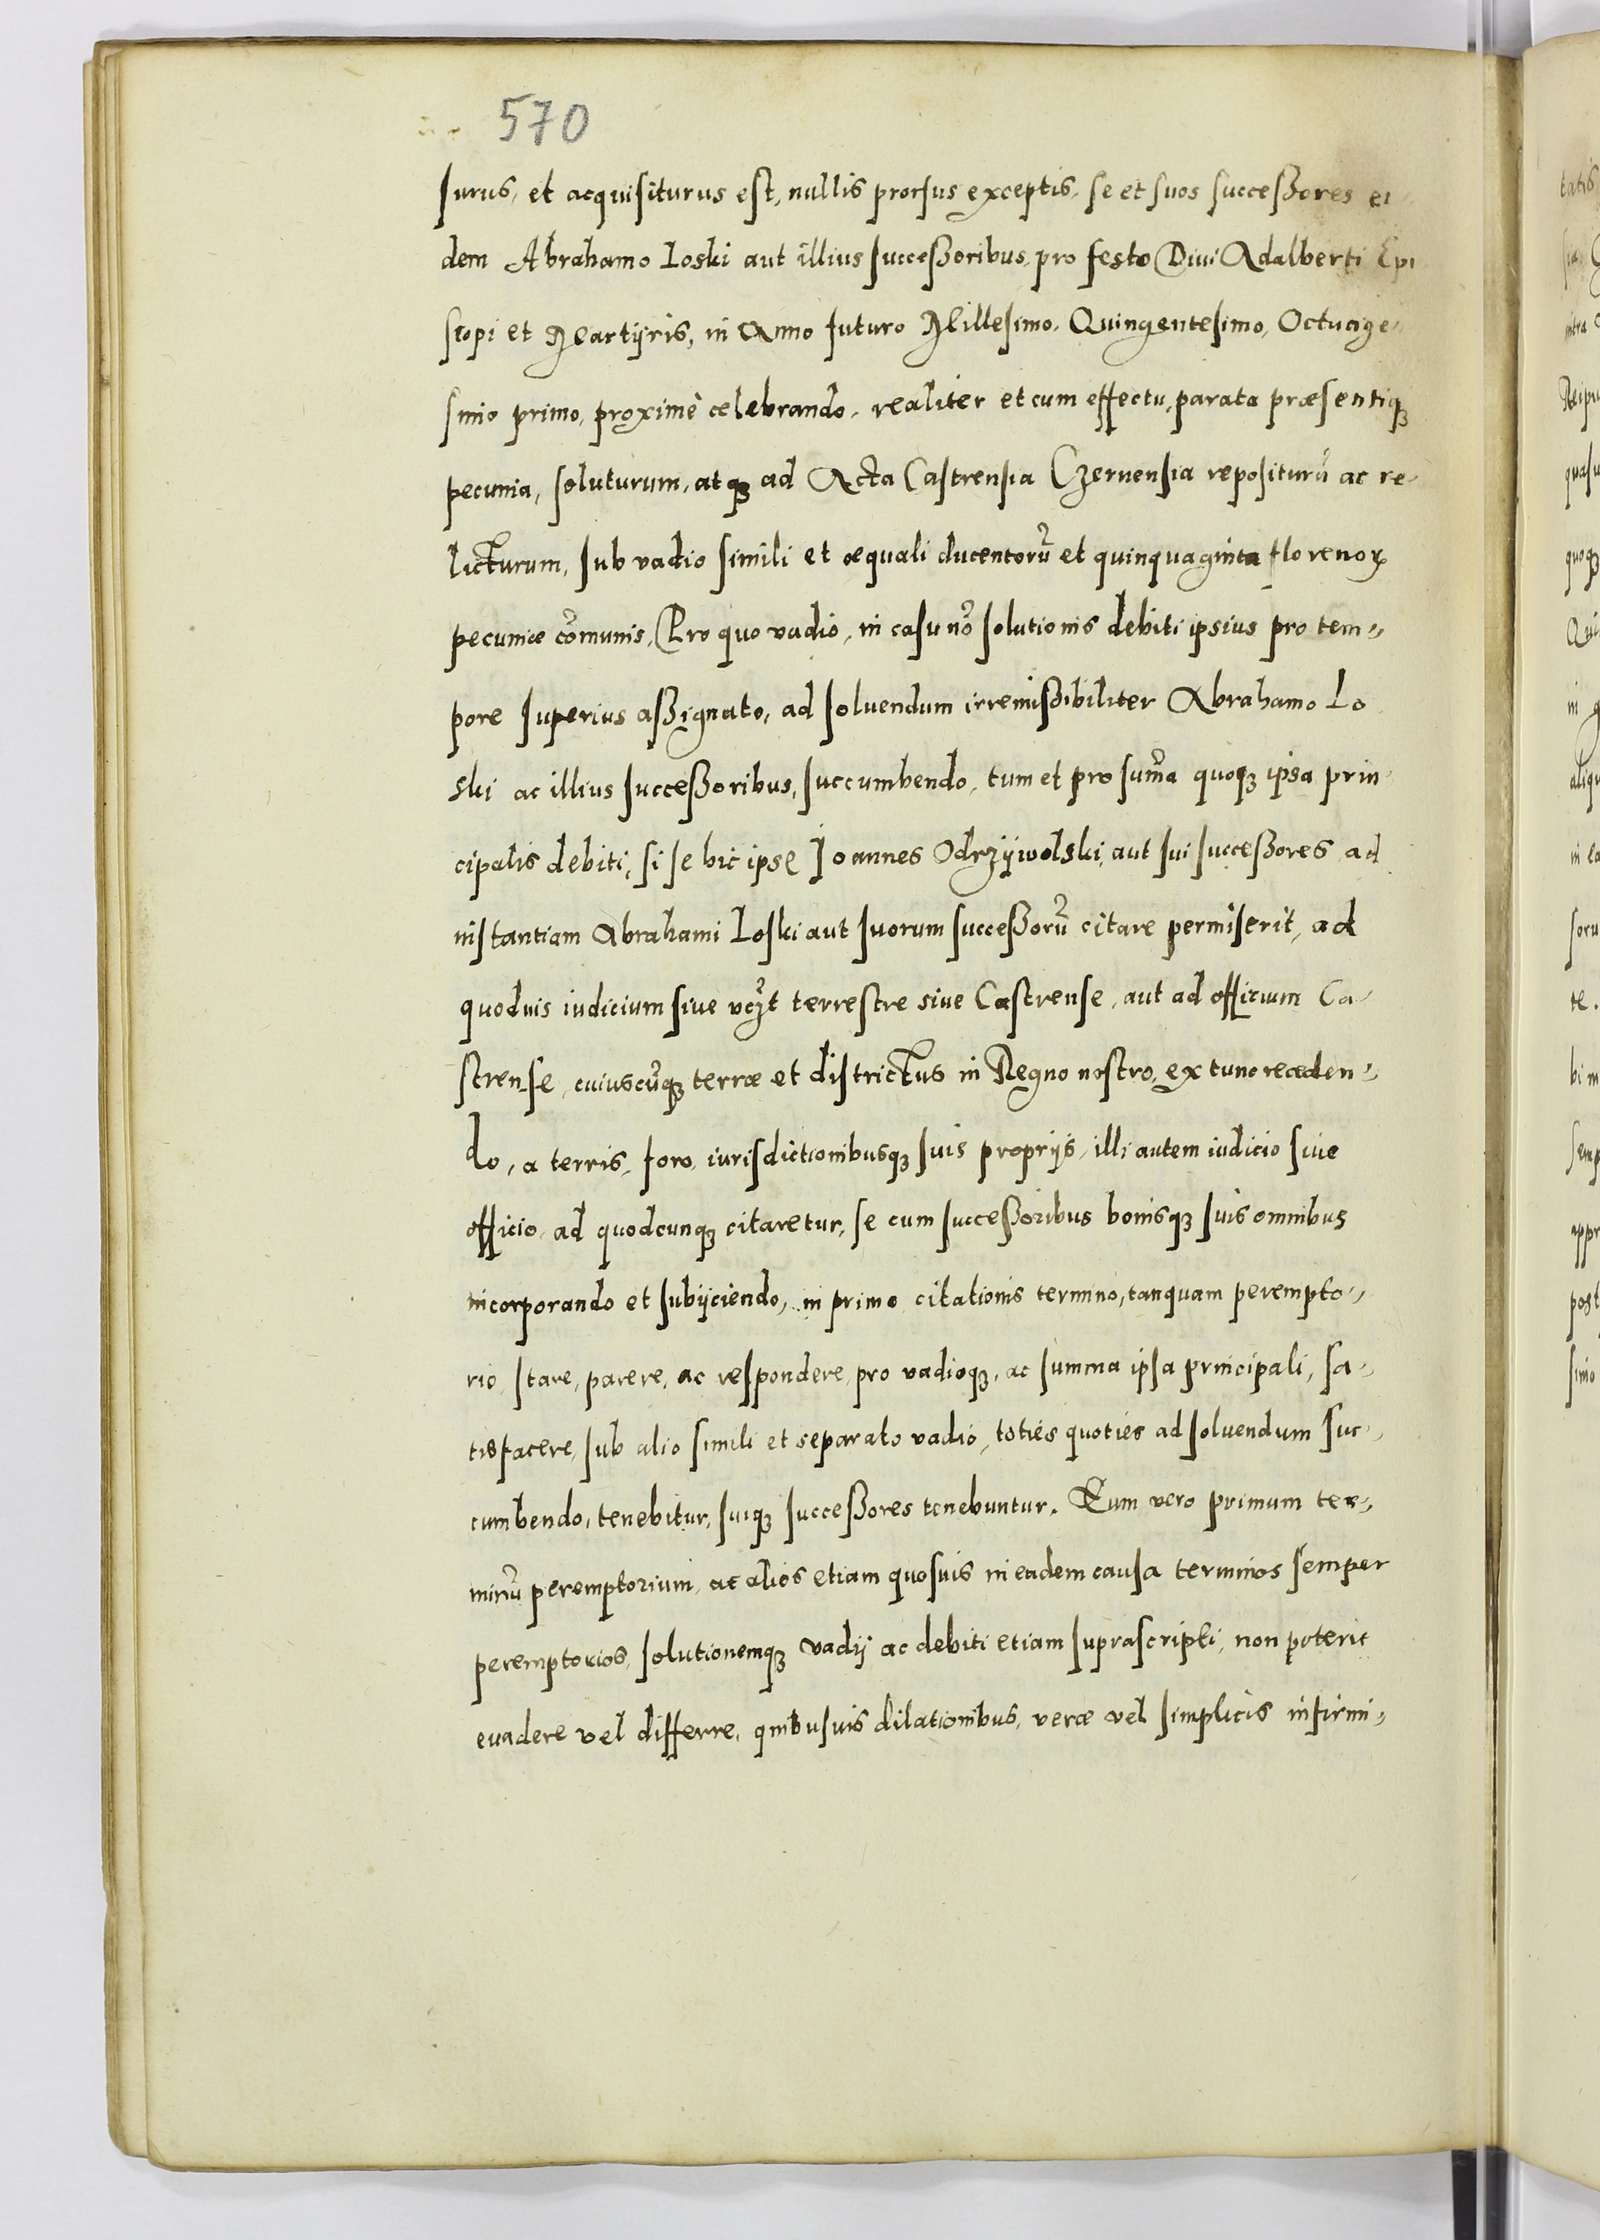 570
surus, et acquisiturus est, nullis prorsus exceptis, se et suos successores ei-
dem Abrahamo Loski aut illius successoribus, pro festo Divi Adalberti Epi
scopi et Martyris, in Anno futuro Millesimo, Quingentesimo, Octuage-
simo primo, proximè celebrando, realiter et cum effectu, parata præsentiq3
pecunia, soluturum, atq3 ad Acta Castrensia Czernensia repositurũ ac re-
licturum, sub vadio simili et æquali ducentorũ et quinquaginta florenoꝝ
pecuniæ cõmunis, Pro quo vadio, in casu nõ solutionis debiti ipsius pro tem-
pore superius assignato, ad soluendum irremissibiliter Abrahamo Lo
ski ac illius successoribus, succumbendo, tum et pro sum̃a quoq3 ipsa prin-
cipalis debiti, si se hic ipse Joannes Odrzÿwolski, aut sui successores, ad
instantiam Abrahami Loski aut suorum successorũ citare permiserit, ad
quoduis iudicium siue terrestre siue Castrense, aut ad officium Ca-
strense, cuiuscũq3 terræ et districtus in Regno nostro, ex tunc receden-
do, a terris, foro, iurisdictionibusq3 suis proprijs, illi autem iudicio siue
officio, ad quodcunq3 citaretur, se cum successoribus bonisq3 suis omnibus
incorporando et subijciendo, in primo citationis termino, tanquam perempto-
rio, stare, parere, ac respondere, pro vadioq3, ac summa ipsa principali, sa-
tisfacere, sub alio simili et separato vadio, toties quoties ad soluendum suc-
cumbendo, tenebitur, suiq3 successores tenebuntur. Eum vero primum ter-
minũ peremptorium, ac alios etiam quosuis in eadem causa terminos semper
peremptorios, solutionemq3 vadij ac debiti etiam suprascripti, non poterit
euadere vel differre, quibusuis dilationibus, veræ vel simplicis infirmi-